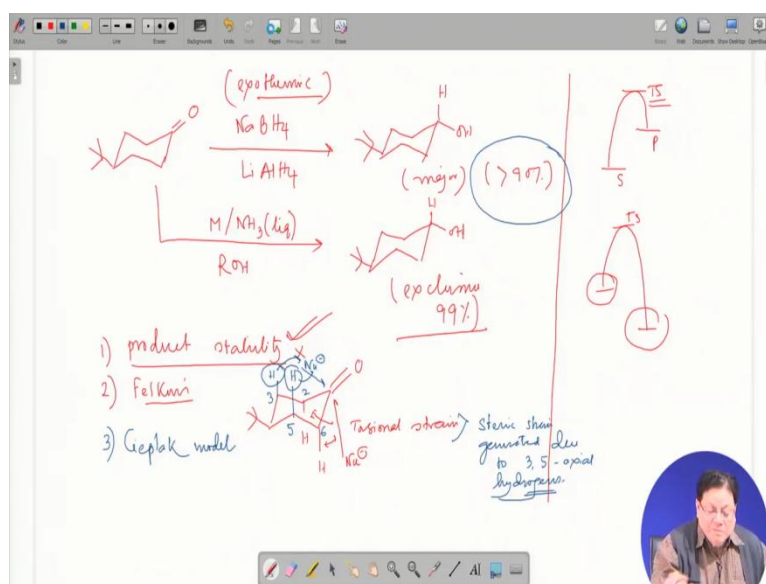 Status
Color
Line
Eraser
Backgrounds
Undo
Redo
Pages
Previous
Next
Erase
Web
Documents
Show Desktop
(exothermic)
O
NaBH4
LiAlH4
H
OH
(major)
(>90%)
TS
P
S
M/NH3(liq)
ROH
H
OH
(exclusive
99%)
TS
1) product stability
2) Felkin's
3) Cieplak model
H
H
X
Nu⊖
O
3
2
5
6
H
H
Nu⊖
Torsional strain
Steric strain
generated due
to 3,5-axial
hydrogens.
AI